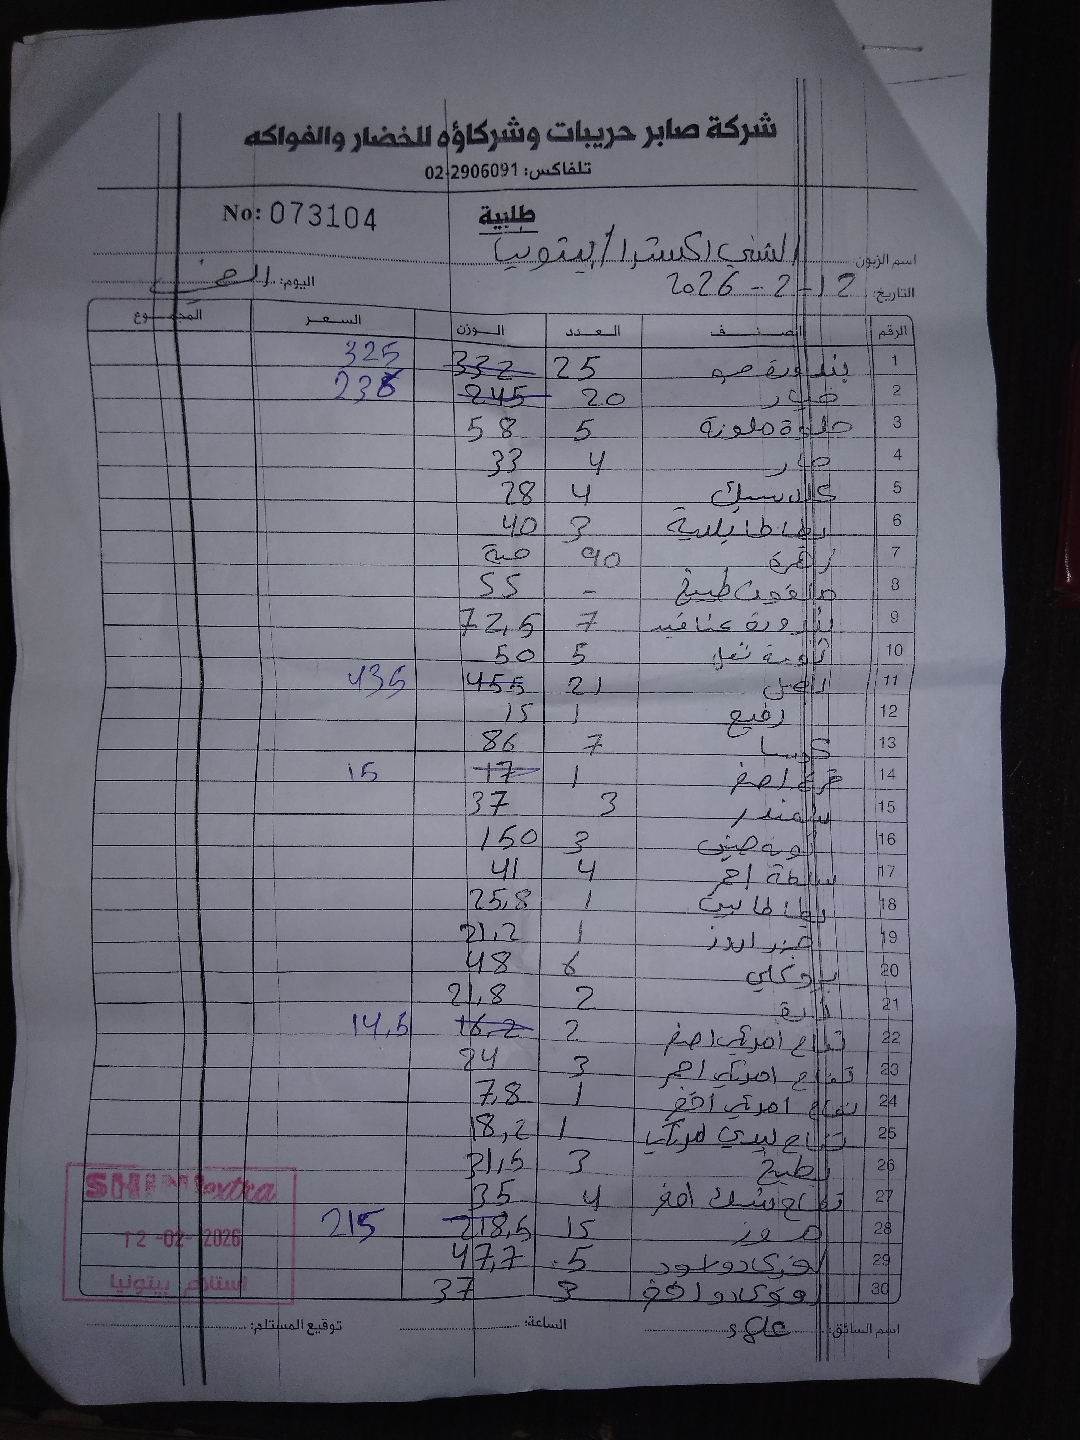 شركة صابر حريبات وشركاؤه للخضار والفواكه
تلفاكس: 02-2906091
No: 073104
طلبية
اسم الزبون: الشني اكسترا / بيتونيا
التاريخ: 12-2-2026 اليوم:
الرقم الصنف العدد الوزن السعر المجموع
1 بندورة حمو 25 332 325
2 خيار 20 245
3 حلوة ملونة 5 58
4 حار 4 33
5 4 28
6 بطاطا بلدية 3 40
7 زهرة 90 حبة
8 ملفوف طبيخ - 55
9 بندورة عناقيد 7 72,5
10 5 50
11 بصل 21 455 435
12 رفيع 1 15
13 كوسا 7 86
14 قرع اصفر 1 17 15
15 شمندر 3 37
16 ثومة صيني 3 150
17 سلطة احمر 4 41
18 بطاطا بيبي 1 25,8
19 جزر اروز 1 21,2
20 بروكلي 6 48
21 ذرة 2 21,8
22 تفاح امريكي اصفر 2 16,2 14,5
23 تفاح امريكي احمر 3 24
24 تفاح امريكي اخضر 1 7,8
25 تفاح ليدي امريكي 1 18,2
26 بطيخ 3 31,5
27 تفاح اخضر 4 35
28 موز 15 218,5 215
29 افوكادو اسود 5 47,7
30 افوكادو اخضر 3 37
SHINI extra
12-02-2026
استلام بيتونيا
اسم السائق: الساعة: توقيع المستلم: